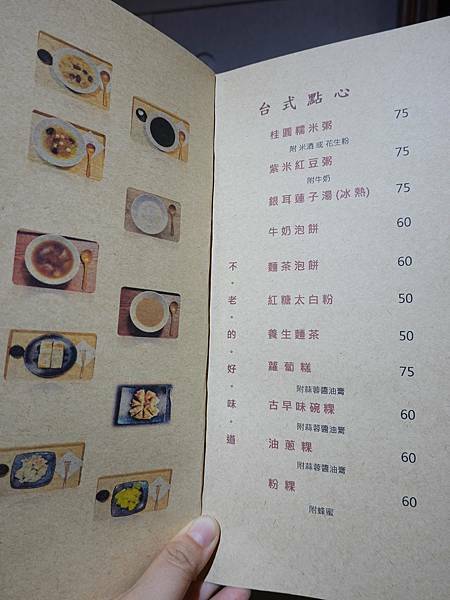 台式點心
桂圓糯米粥 75
附 米酒 或 花生粉
紫米紅豆粥 75
附牛奶
銀耳蓮子湯(冰熱) 75
牛奶泡餅 60
麵茶泡餅 60
紅糖太白粉 50
養生麵茶 50
蘿蔔糕 75
附蒜蓉醬油膏
古早味碗粿 60
附蒜蓉醬油膏
油蔥粿 60
附蒜蓉醬油膏
粉粿 60
附蜂蜜
不•老•的•好•味•道